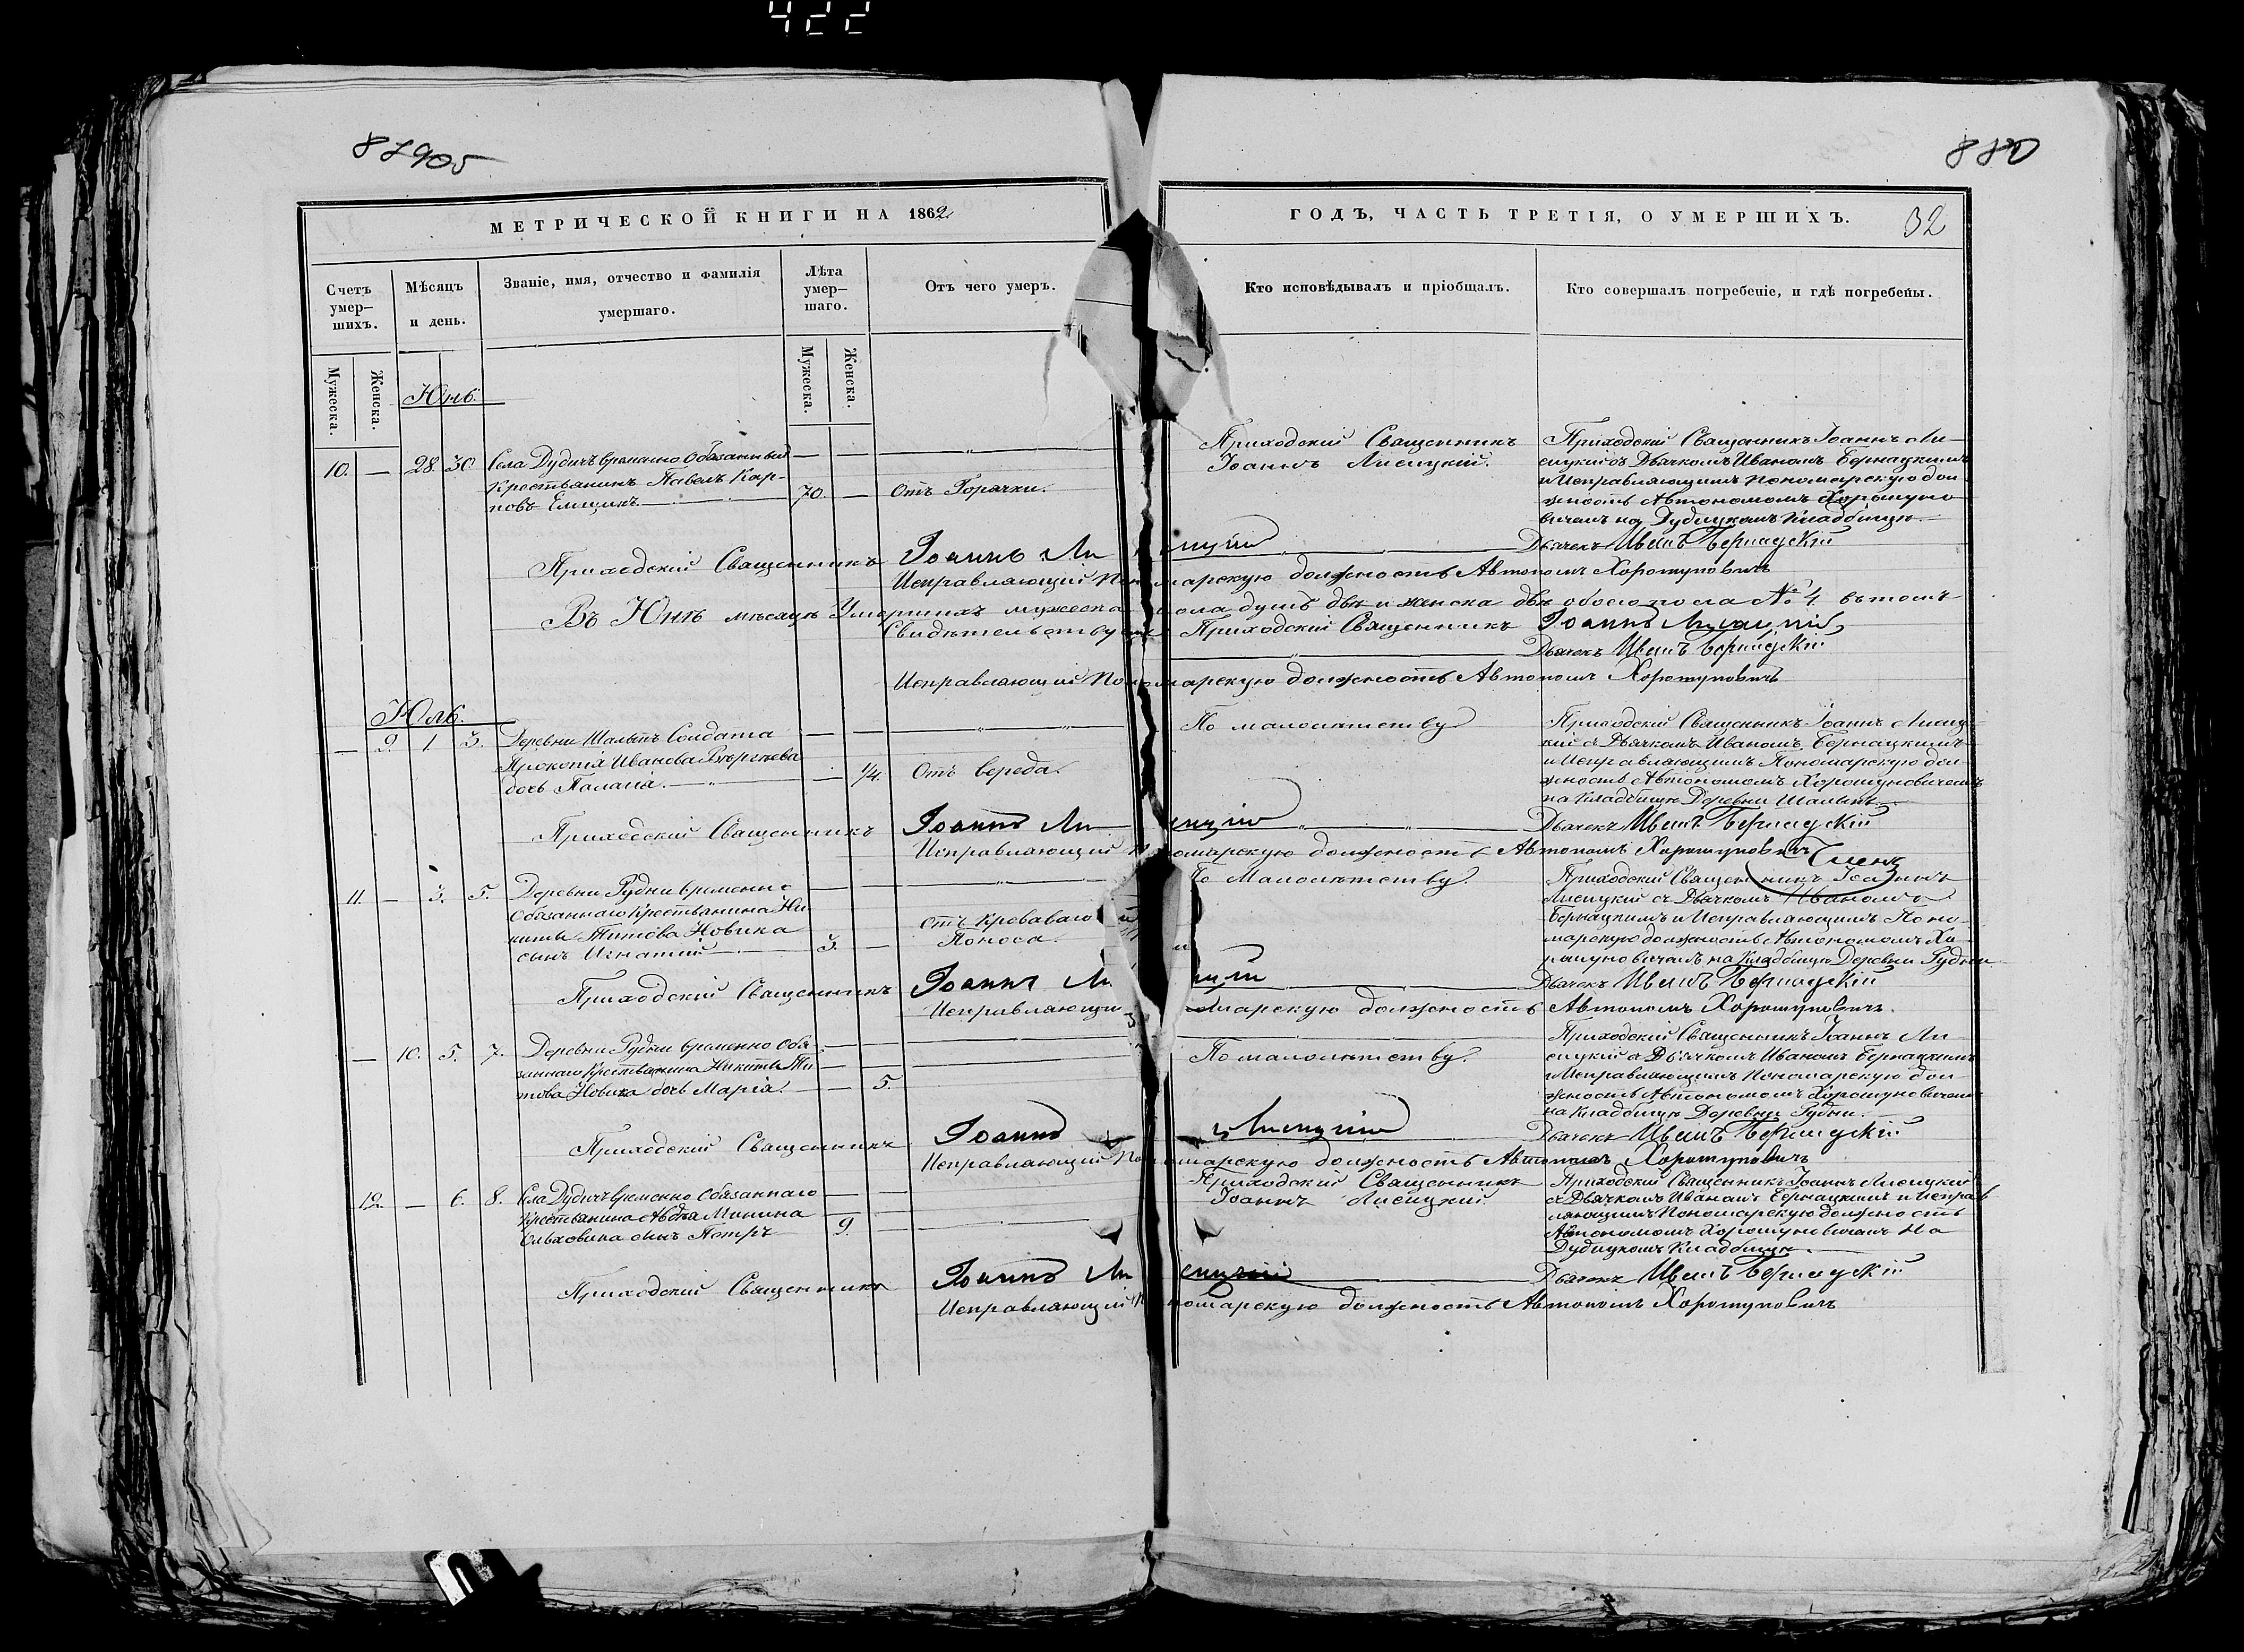 422
87905
880
МЕТРИЧЕСКОЙ КНИГИ НА 1862
ГОДЪ, ЧАСТЬ ТРЕТІЯ, О УМЕРШИХЪ.
32
Счетъ умер-шихъ.
Мѣсяцъ и день.
Званіе, имя, отчество и фамилія умершаго.
Лѣта умер-шаго.
Отъ чего умеръ.
Кто исповѣдывалъ и пріобщалъ.
Кто совершалъ погребеніе, и гдѣ погребены.
Мужеска.
Женска.
Мужеска.
Женска.
Юнь.
10. — 28. 30.
Села Дудичъ временно Обязанный
Крестьянинъ Павелъ Кар-
повъ
70. —
Отъ Горячки.
Приходскій Священникъ
Іоаннъ Лисицкій.
Приходскій Священникъ Іоаннъ Ли-
сицкій съ Дьячкомъ Иваномъ Бернацкимъ
и Исправляющимъ Пономарскую дол-
жность Автономомъ Хорошуно-
вичемъ на Дудицкомъ Кладбищи.
Приходскій Священникъ Іоаннъ Лисицкій
Дьячекъ Иванъ Бернацкій
Исправляющій Пономарскую должность Автономъ Хорошуновичъ
Въ Юнѣ мѣсяцѣ Умершихъ мужеска пола душъ двѣ и женска двѣ обоего пола № 4. въ томъ
Свидѣтельствуемъ Приходскій Священникъ Іоаннъ Лисицкій
Дьячекъ Иванъ Бернацкій
Исправляющій Пономарскую должность Автономъ Хорошуновичъ
Юль.
— 9. 1 3.
Деревни Шалыпъ Солдата
Прокопія Иванова
дочь Палагія.
— 1/4.
Отъ вереда.
По малолѣтству
Приходскій Священникъ Іоаннъ Лисиц-
кій съ Дьячкомъ Иваномъ Бернацкимъ
и Исправляющимъ Пономарскую дол-
жность Автономомъ Хорошуновичемъ
на Кладбищи Деревни Шалыпъ.
Приходскій Священникъ Іоаннъ Лисицкій
Дьячекъ Иванъ Бернацкій
Исправляющій Пономарскую должность Автономъ Хорошуновичъ
11. — 3. 5.
Деревни Рудни временно
Обязаннаго Крестьянина Ни-
киты Титова Новика
сынъ Игнатій
3. —
отъ Кроваваго
Поноса.
По Малолѣтству.
Приходскій Священникъ Іоаннъ
Лисицкій съ Дьячкомъ Иваномъ
Бернацкимъ и Исправляющимъ Поно-
марскую должность Автономомъ Хо-
рошуновичемъ на Кладбищи Деревни Рудни
Приходскій Священникъ Іоаннъ Лисицкій
Дьячекъ Иванъ Бернацкій
Исправляющій Пономарскую должность Автономъ Хорошуновичъ.
— 10. 5. 7.
Деревни Рудни временно Обя-
заннаго Крестьянина Никиты Ти-
това Новика дочь Марія.
— 5.
По малолѣтству.
Приходскій Священникъ Іоаннъ Ли-
сицкій съ Дьячкомъ Иваномъ Бернацкимъ
и Исправляющимъ Пономарскую дол-
жность Автономомъ Хорошуновичемъ
на Кладбищи Деревни Рудни.
Приходскій Священникъ Іоаннъ Лисицкій
Дьячекъ Иванъ Бернацкій
Исправляющій Пономарскую должность Автономъ Хорошуновичъ
12. — 6. 8.
Села Дудичъ временно Обязаннаго
Крестьянина Авдѣя Минина
Ольховика сынъ Петръ
9.
Приходскій Священникъ
Іоаннъ Лисицкій.
Приходскій Священникъ Іоаннъ Лисицкій
съ Дьячкомъ Иваномъ Бернацкимъ и Исправ
ляющимъ Пономарскую должность
Автономомъ Хорошуновичемъ на
Дудицкомъ Кладбищи.
Приходскій Священникъ Іоаннъ Лисицкій
Дьячекъ Иванъ Бернацкій
Исправляющій Пономарскую должность Автономъ Хорошуновичъ